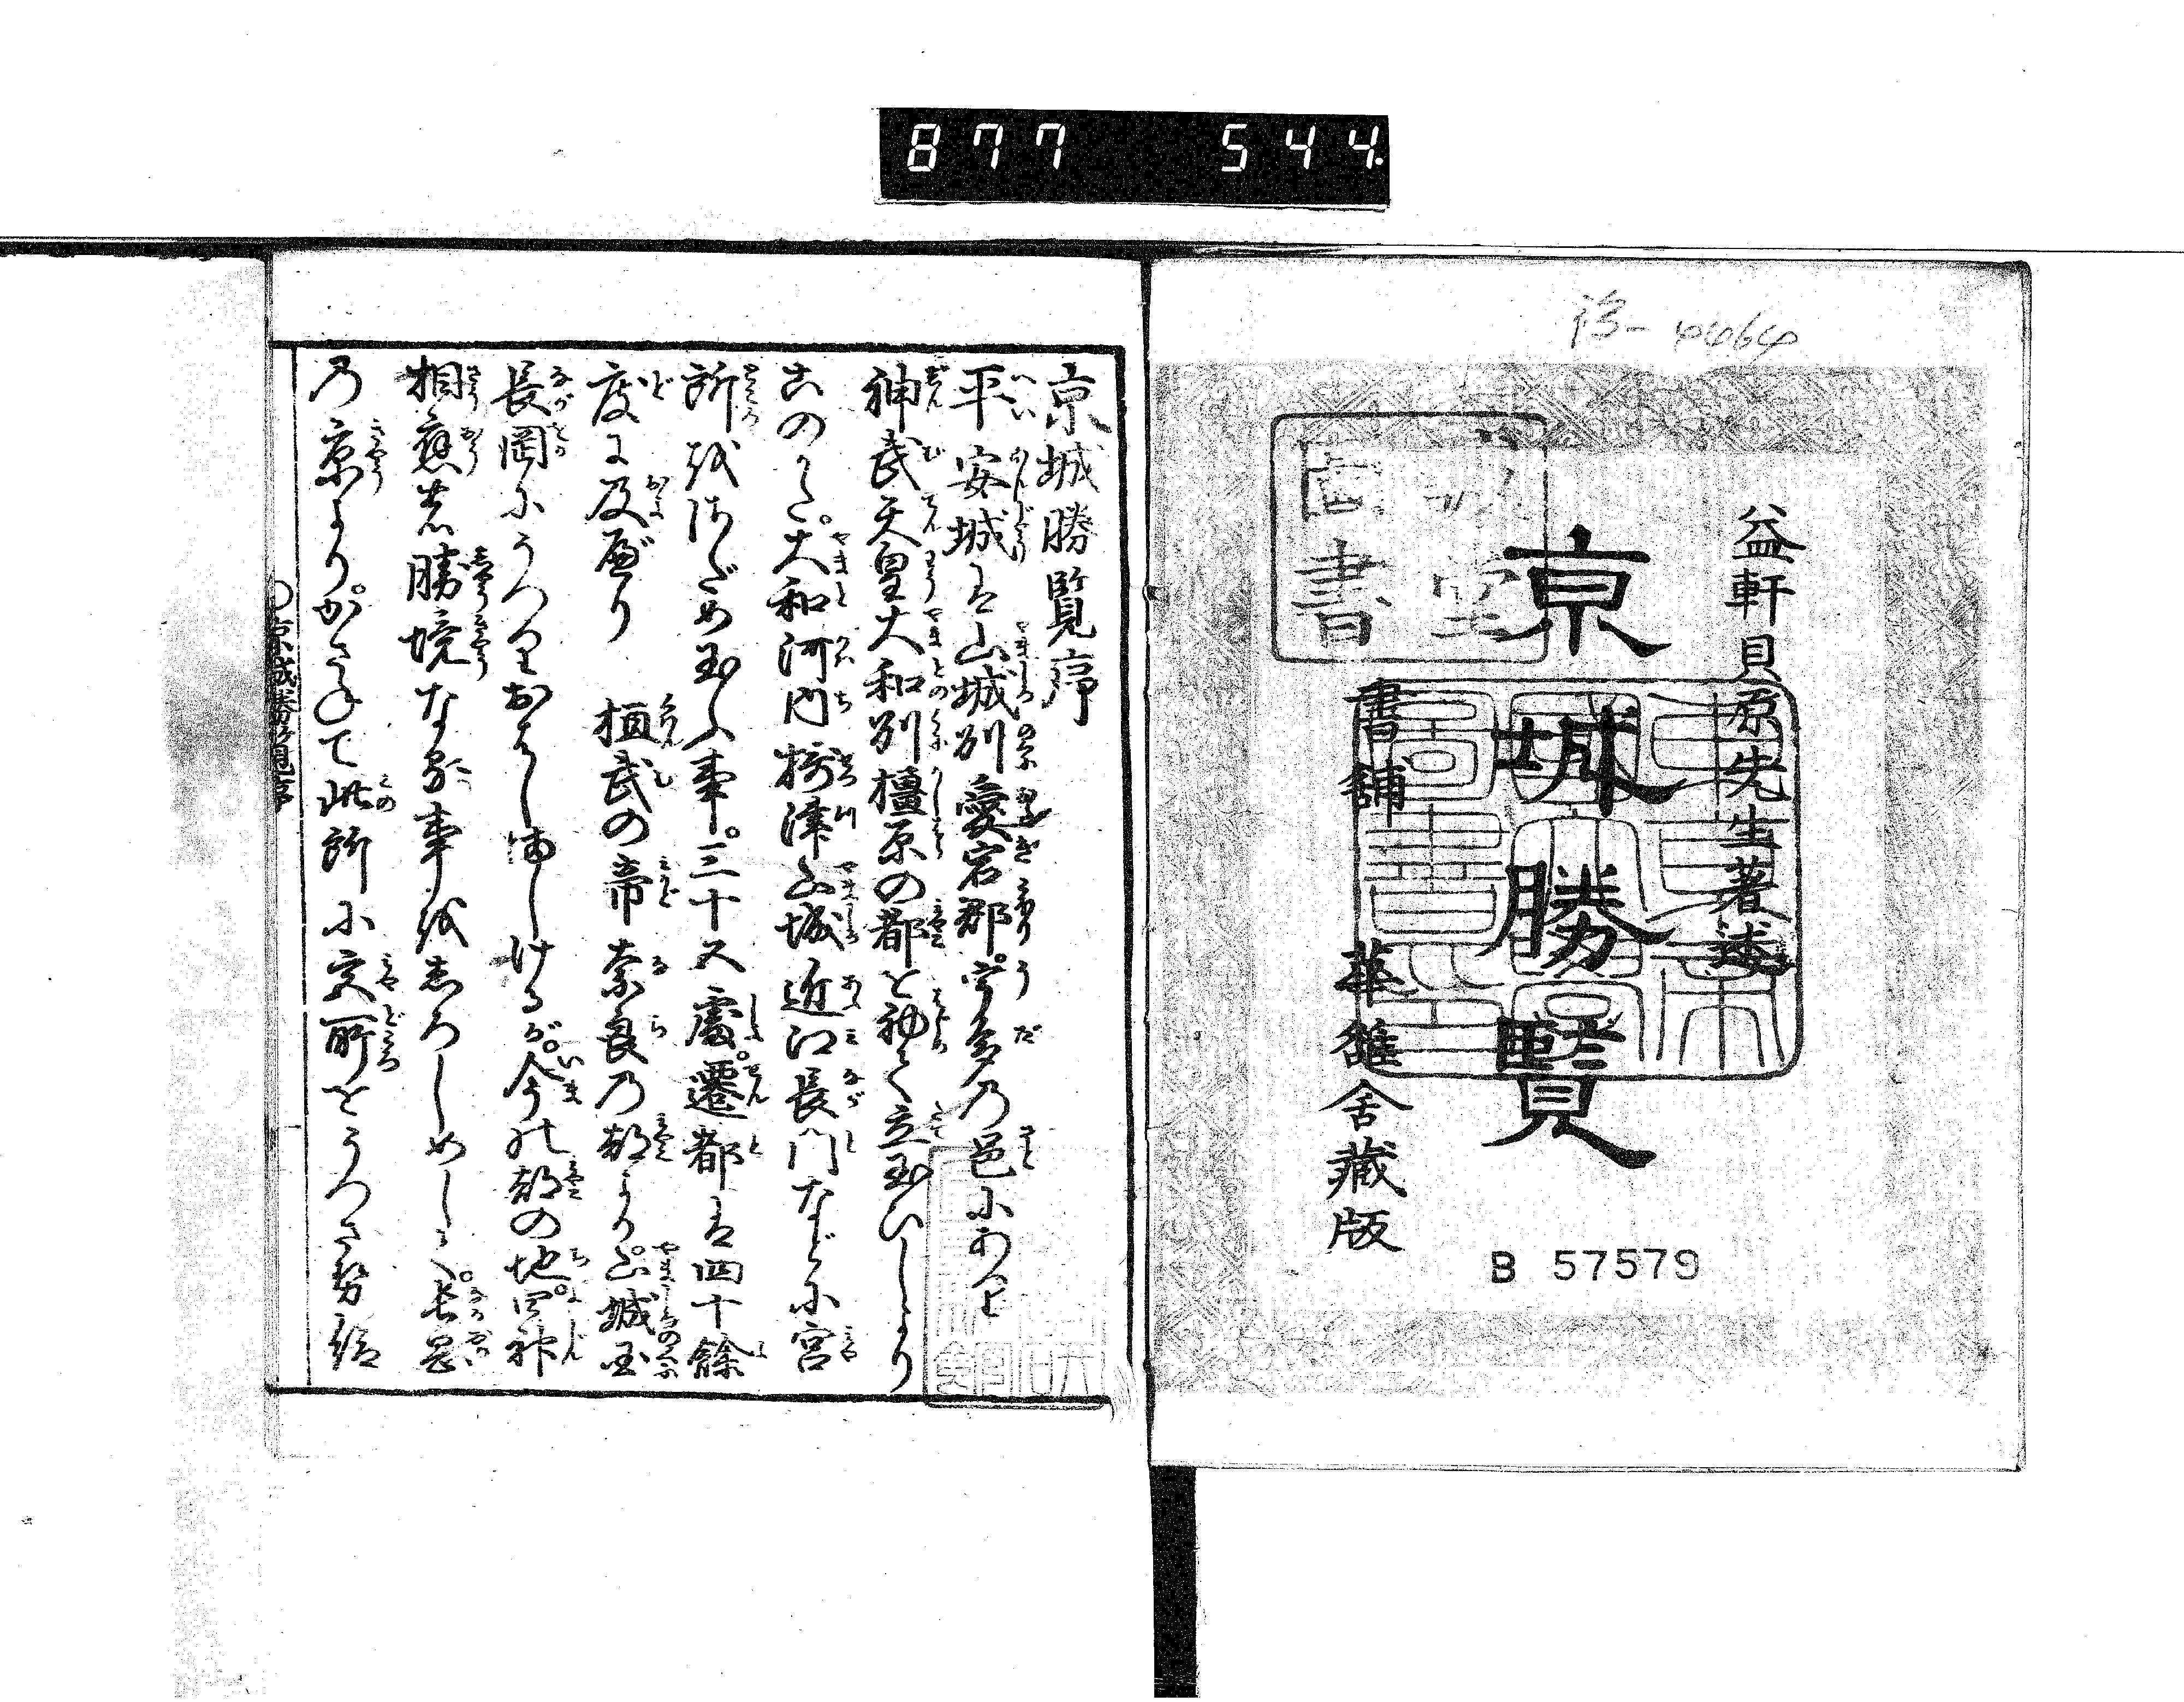 877 544.
益軒貝原先生著述
京城勝覧
書舗 華雒舎藏版
B 57579
京城勝覧序
平安城は山城州愛宕郡。宇多乃邑にあり
神武天皇大和州橿原の都を初て立玉ひしより
このかた。大和河内摂津山城近江長門などに宮
所をさだめ玉ふ事。三十五處。遷都は四十餘
度に及べり 桓武の帝奈良乃都より山城国
長岡にうつりおはしましけるが。今の都の地。四神
相應の勝境なる事をしろしめして。長岡
乃京より。かさねて此所に宮所をうつさせ給
京城勝覧序